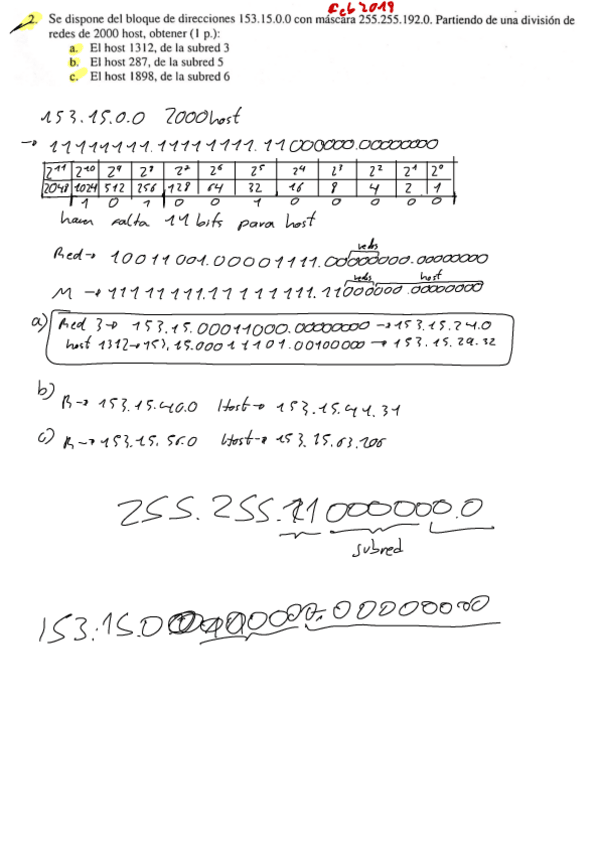 Feb 2019
2. Se dispone del bloque de direcciones 153.15.0.0 con máscara 255.255.192.0. Partiendo de una división de
redes de 2000 host, obtener (1 p.):
a. El host 1312, de la subred 3
b. El host 287, de la subred 5
c. El host 1898, de la subred 6
153.15.0.0 2000host
→ 11111111.11111111.11000000.00000000
2¹¹ 2¹⁰ 2⁹ 2⁸ 2⁷ 2⁶ 2⁵ 2⁴ 2³ 2² 2¹ 2⁰
2048 1024 512 256 128 64 32 16 8 4 2 1
1 0 1 0 0 1 0 0 0 0 0
hacen falta 11 bits para host
redes
Red→ 10011001.00001111.00000000.00000000
redes host
M → 11111111.11111111.11000000.00000000
a) Red 3→ 153.15.00011000.00000000 → 153.15.24.0
host 1312→ 153.15.00011101.00100000 → 153.15.29.32
b) R→ 153.15.40.0 Host→ 153.15.41.31
c) R→ 153.15.56.0 Host→ 153.15.63.106
255.255.11000000.0
subred
153.15.00000000.00000000